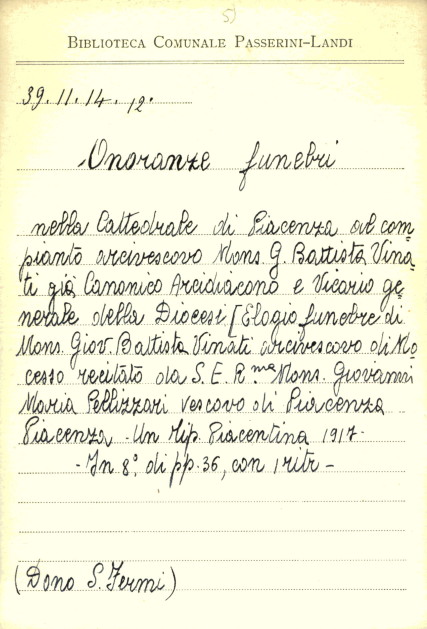 5)
BIBLIOTECA COMUNALE PASSERINI-LANDI
39.11.14.12.
Onoranze funebri
nella Cattedrale di Piacenza al com=
pianto arcivescovo Mons. G. Battista Vina=
ti già Canonico Arcidiacono e Vicario ge=
nerale della Diocesi [Elogio funebre di
Mons. Giov. Battista Vinati arcivescovo di Mo
cesso recitato da S. E. R.ma Mons. Giovanni
Maria Pellizzari vescovo di Piacenza
Piacenza - Un. Tip. Piacentina 1917-
- In 8° di pp. 36, con 1 ritr -
(Dono S. Fermi)